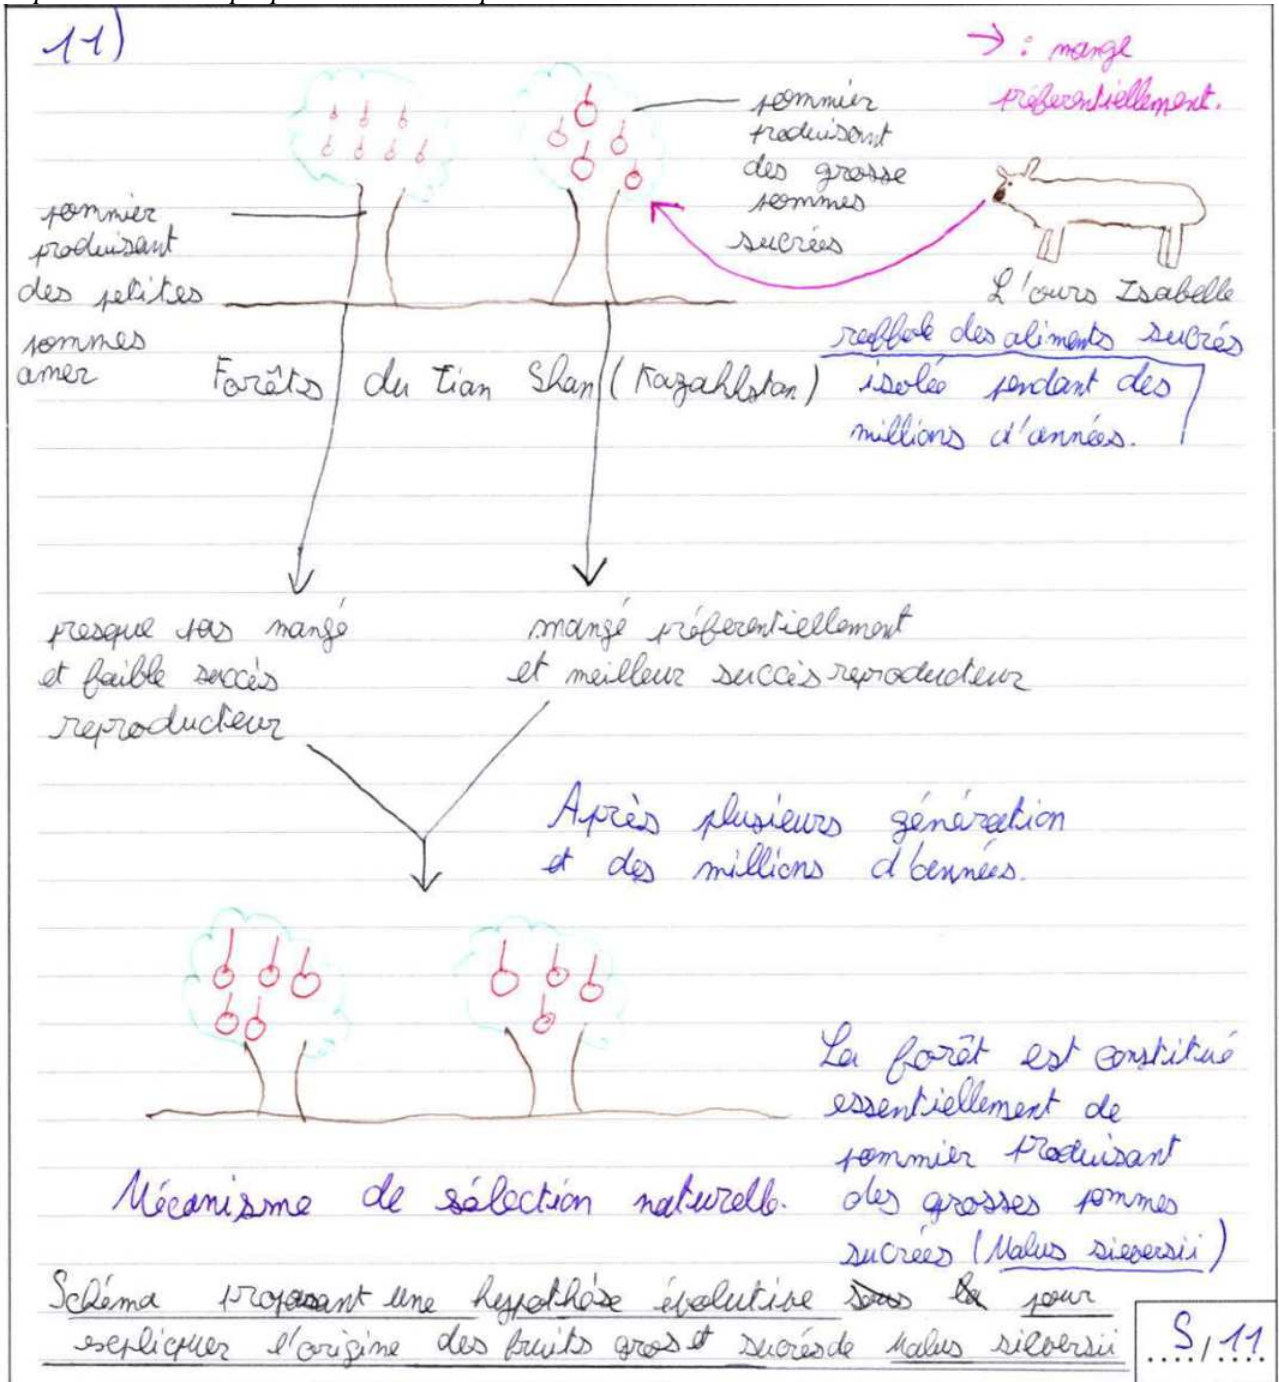 11)
→ : mange
préferentiellement.
pommier
produisant
des grosse
pommes
sucrées
pommier
produisant
des petites
pommes
amer
L'ours Isabelle
raffole des aliments sucrés
isolée pendant des
millions d'années.
Forêts du Tian Shan (Kazahkstan)
presque pas mangé
et faible succès
reproducteur
mangé préferentiellement
et meilleur succès reproducteur
Après plusieurs génération
et des millions d'années.
La forêt est constitué
essentiellement de
pommier produisant
des grosses pommes
sucrées (Malus sieversii)
Mécanisme de sélection naturelle.
Schéma proposant une hypothèse évolutive pour
expliquer l'origine des fruits gros et sucrés de Malus silversii
S, 11